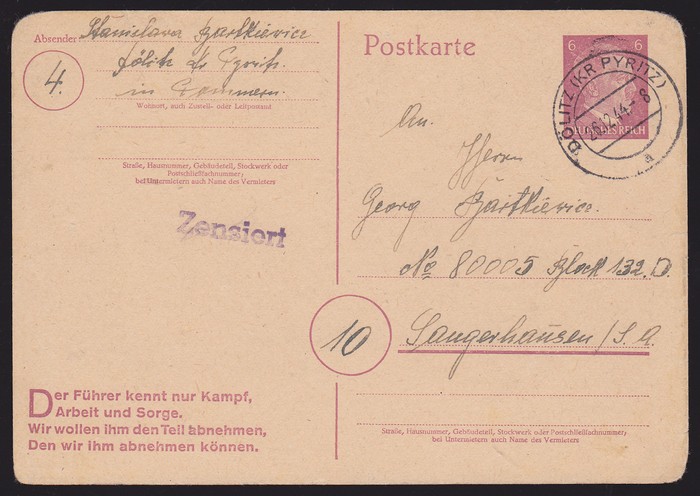 Absender: Stanislawa Bartkiewicz
Dölitz Kr Pyritz
in Pommern.
4.
Wohnort, auch Zustell- oder Leitpostamt
Straße, Hausnummer, Gebäudeteil, Stockwerk oder
Postschließfachnummer;
bei Untermietern auch Name des Vermieters
Zensiert
Der Führer kennt nur Kampf,
Arbeit und Sorge.
Wir wollen ihm den Teil abnehmen,
Den wir ihm abnehmen können.
Postkarte
6 6
DEUTSCHES REICH
DÖLITZ (KR PYRITZ)
26.2.44.- 8
a
An.
Herrn
Georg Bartkiewicz.
No 80005 Block 132. D.
10
Sangerhausen /S.A.
Straße, Hausnummer, Gebäudeteil, Stockwerk oder Postschließfachnummer;
bei Untermietern auch Name des Vermieters